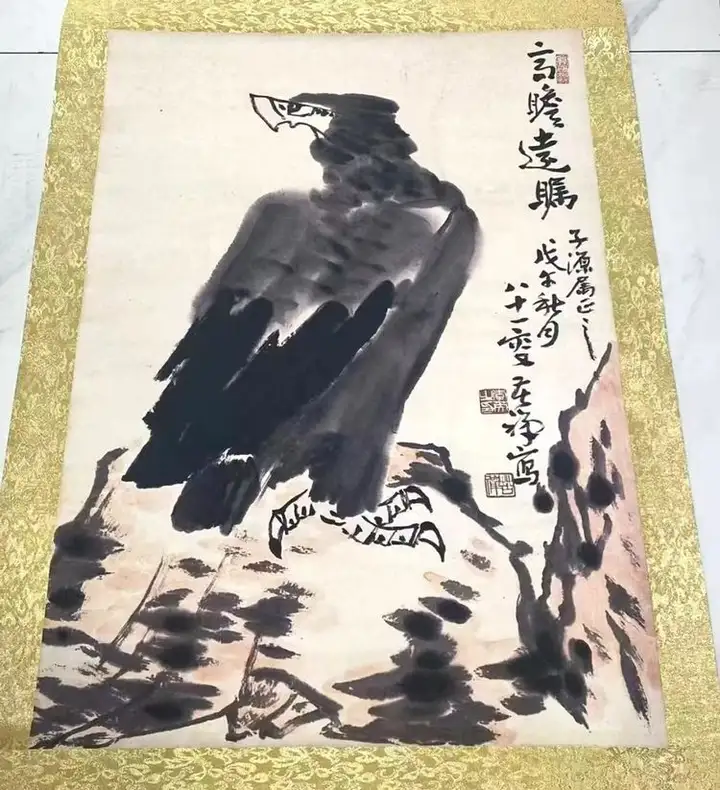 高瞻遠矚
子源属正之
戊午秋月
八十一叟苦禅寫